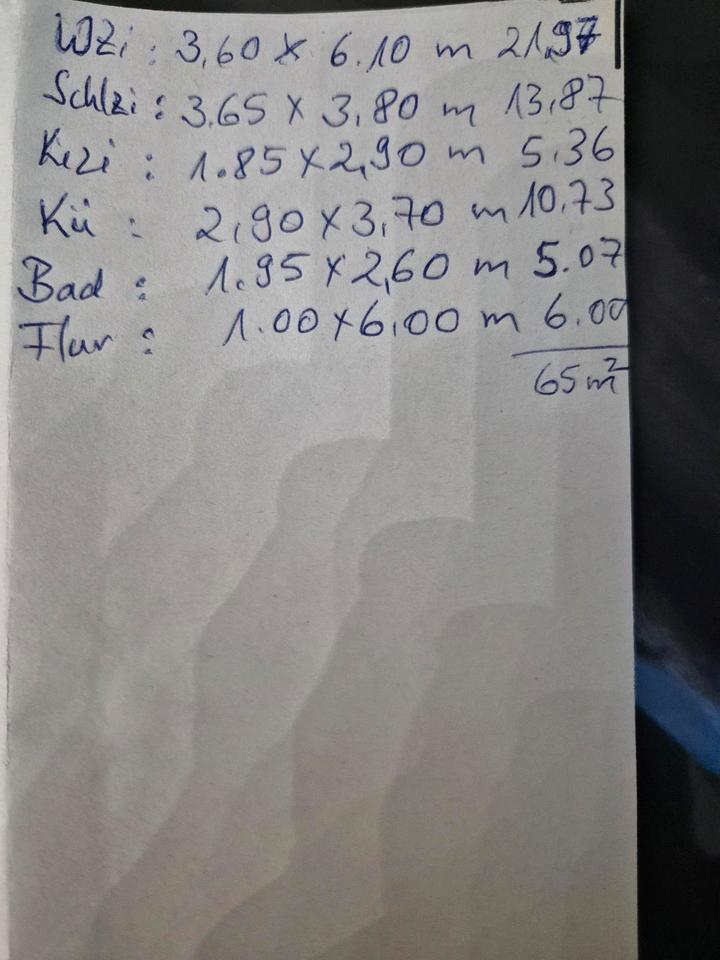 WZi : 3,60 x 6.10 m 21,97
Schlzi : 3.65 x 3,80 m 13,87
Kizi : 1.85 x 2,90 m 5.36
Kü : 2,90 x 3,70 m 10.73
Bad : 1.95 x 2,60 m 5.07
Flur : 1.00 x 6,00 m 6.00
65 m²